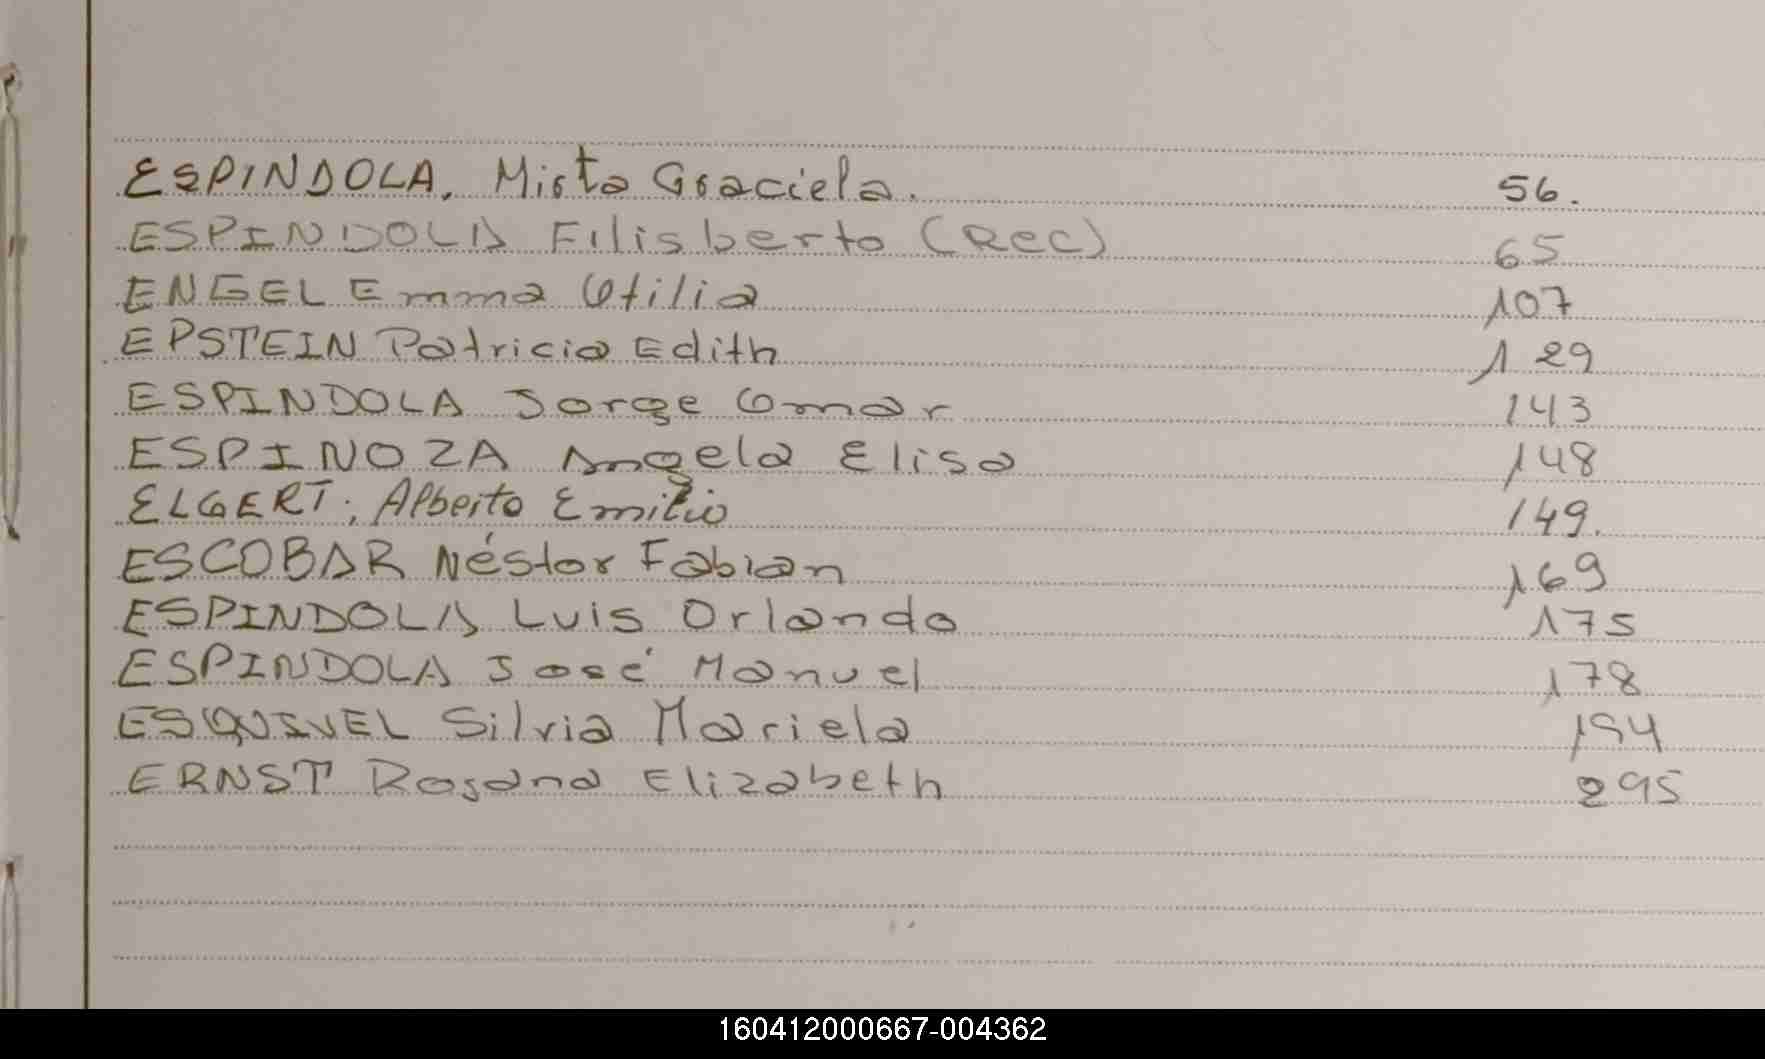 ESPINDOLA, Mirta Graciela. 56.
ESPINDOLA Filisberto (Rec) 65
ENGEL Emma Otilia 107
EPSTEIN Patricia Edith 129
ESPINDOLA Jorge Omar 143
ESPINOZA Angela Elisa 148
ELGERT, Alberto Emilio 149.
ESCOBAR Néstor Fabian 169
ESPINDOLA Luis Orlando 175
ESPINDOLA José Manuel 178
ESQUIVEL Silvia Mariela 194
ERNST Rosana Elizabeth 295
160412000667-004362